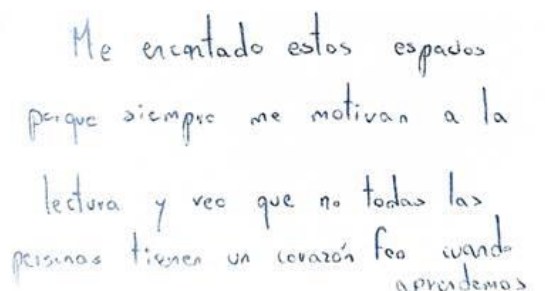 Me encantado estos espacios
porque siempre me motivan a la
lectura y veo que no todas las
personas tienen un corazón feo cuando
aprendemos